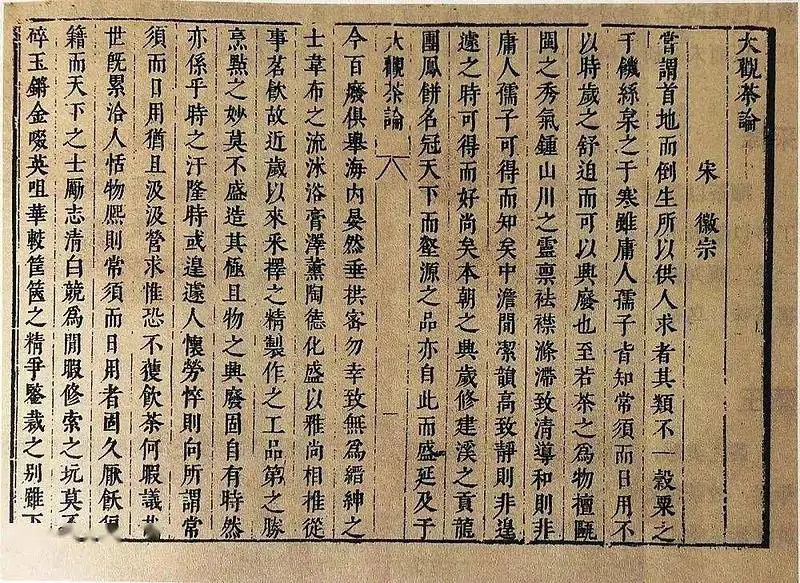 大觀茶論
宋 徽宗
嘗謂首地而倒生所以供人求者其類不一穀粟之
于饑絲枲之于寒雖庸人孺子皆知常須而日用不
以時歲之舒迫而可以興廢也至若茶之爲物擅甌
閩之秀氣鍾山川之靈禀祛襟滌滯致清導和則非
庸人孺子可得而知矣中澹間潔韻高致靜則非遑
遽之時可得而好尚矣本朝之興歲修建溪之貢龍
團鳳餅名冠天下而壑源之品亦自此而盛延及于
大觀茶論 一
今百廢俱舉海内晏然垂拱密勿幸致無爲縉紳之
士韋布之流沐浴膏澤薰陶德化盛以雅尚相推從
事茗飲故近歲以來采擇之精製作之工品第之勝
烹點之妙莫不盛造其極且物之興廢固自有時然
亦係乎時之汙隆時或遑遽人懷勞悴則向所謂常
須而日用猶且汲汲營求惟恐不獲飲茶何暇議
世旣累洽人恬物熙則常須而日用者固久厭飫
籍而天下之士勵志清白競爲閒暇修索之玩莫
碎玉鏘金啜英咀華較筐篋之精爭鑒裁之别雖